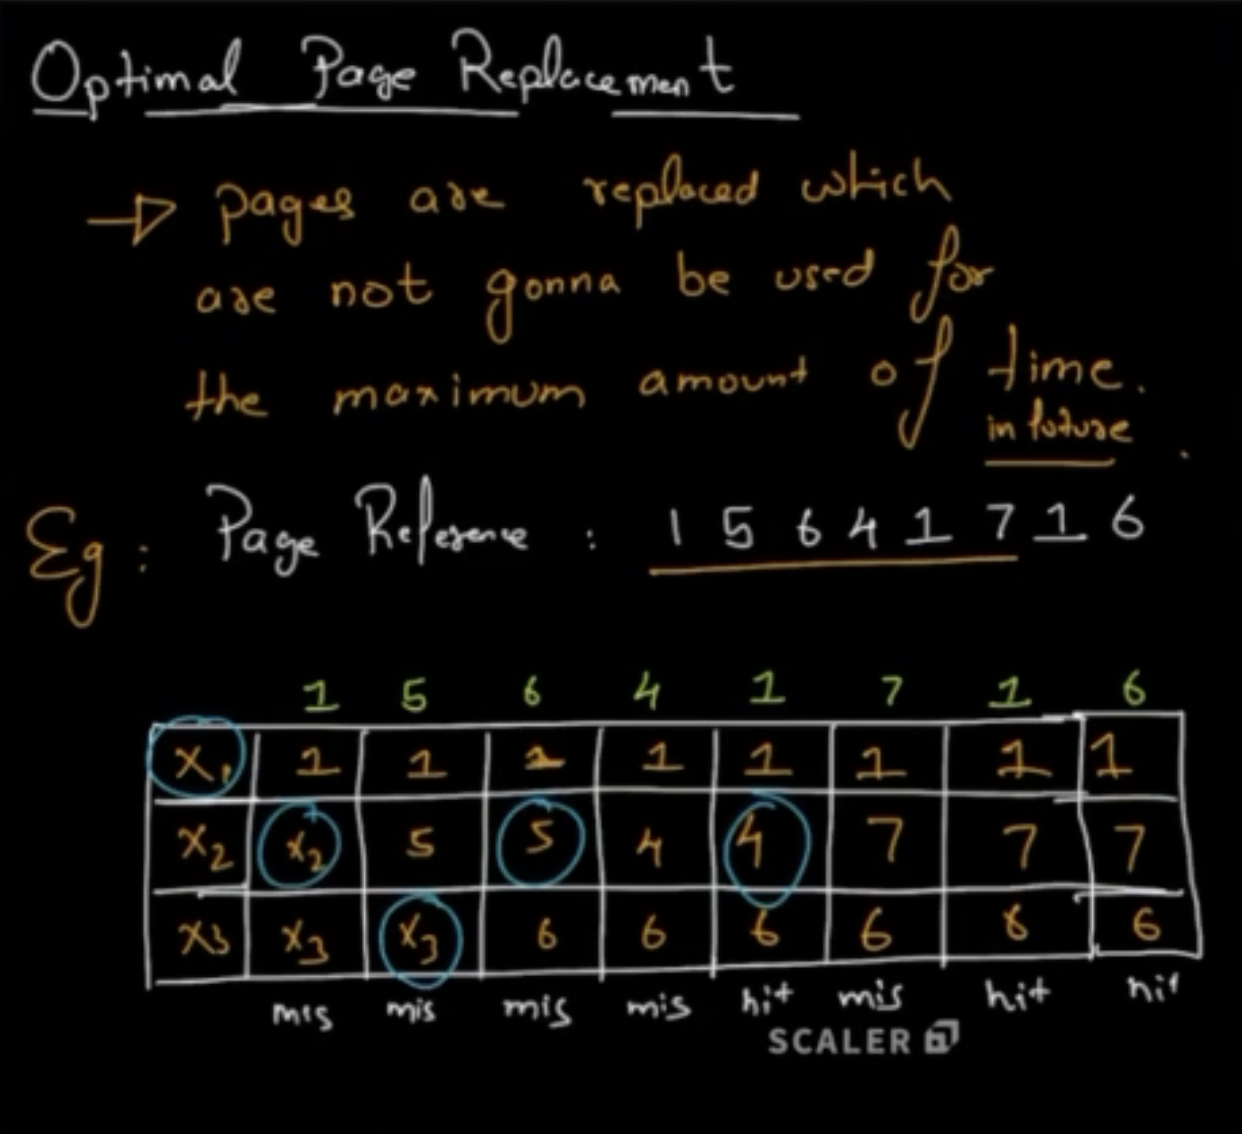 Optimal Page Replacement
→ pages are replaced which
are not gonna be used for
the maximum amount of time.
in future
Eg: Page Reference : 1 5 6 4 1 7 1 6
1 5 6 4 1 7 1 6
x1 1 1 1 1 1 1 1 1
x2 x2 5 5 4 4 7 7 7
x3 x3 x3 6 6 6 6 6 6
mis mis mis mis hit mis hit hit
SCALER